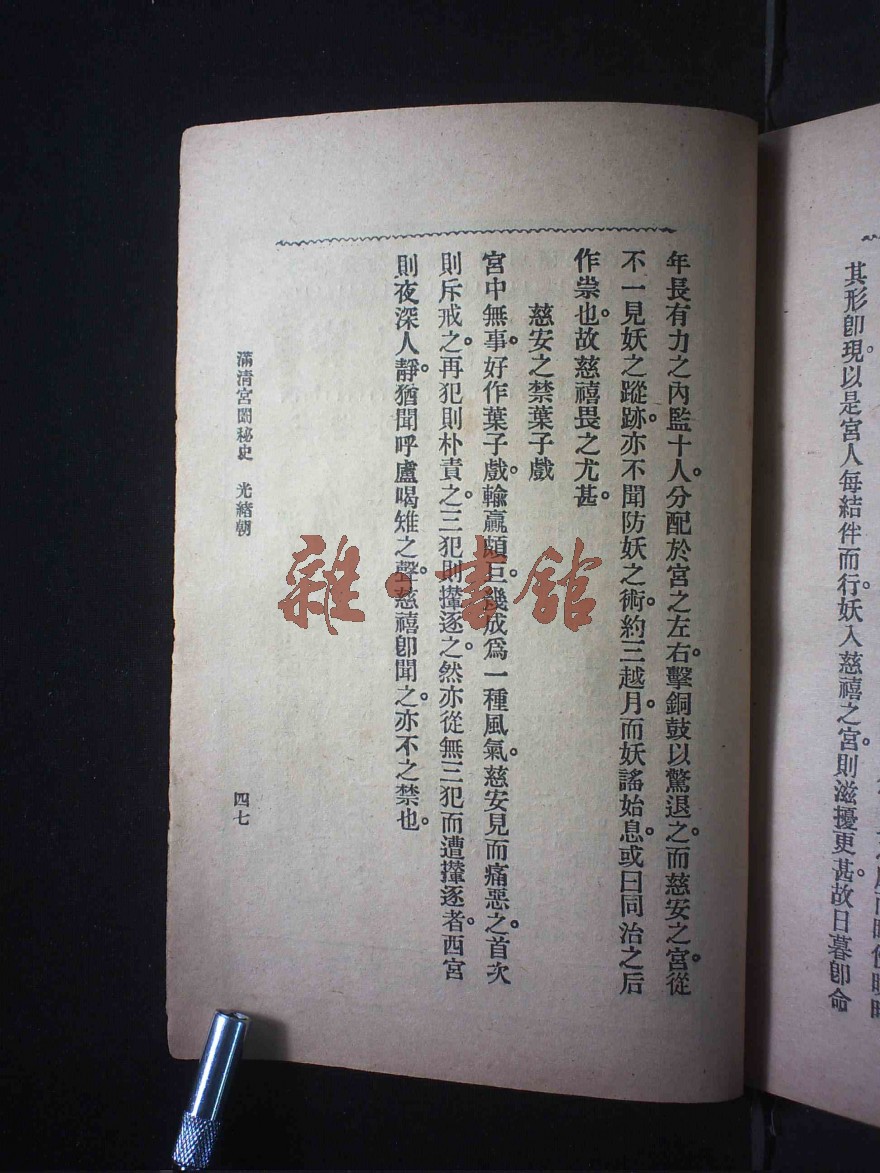 其形卽現。以是宮人每結伴而行。妖入慈禧之宮。則滋擾更甚。故日暮卽命
年長有力之內監十人。分配於宮之左右。擊銅鼓以驚退之。而慈安之宮。從
不一見妖之蹤跡。亦不聞防妖之術。約三越月。而妖謠始息。或曰同治之后
作祟也。故慈禧畏之尤甚。
慈安之禁葉子戲
宮中無事。好作葉子戲。輸贏頗巨。幾成爲一種風氣。慈安見而痛惡之。首次
則斥戒之。再犯則朴責之。三犯則攆逐之。然亦從無三犯而遭攆逐者。西宮
則夜深人靜。猶聞呼盧喝雉之聲。慈禧卽聞之。亦不之禁也。
滿淸宮闈秘史 光緒朝
四七
雜·書館